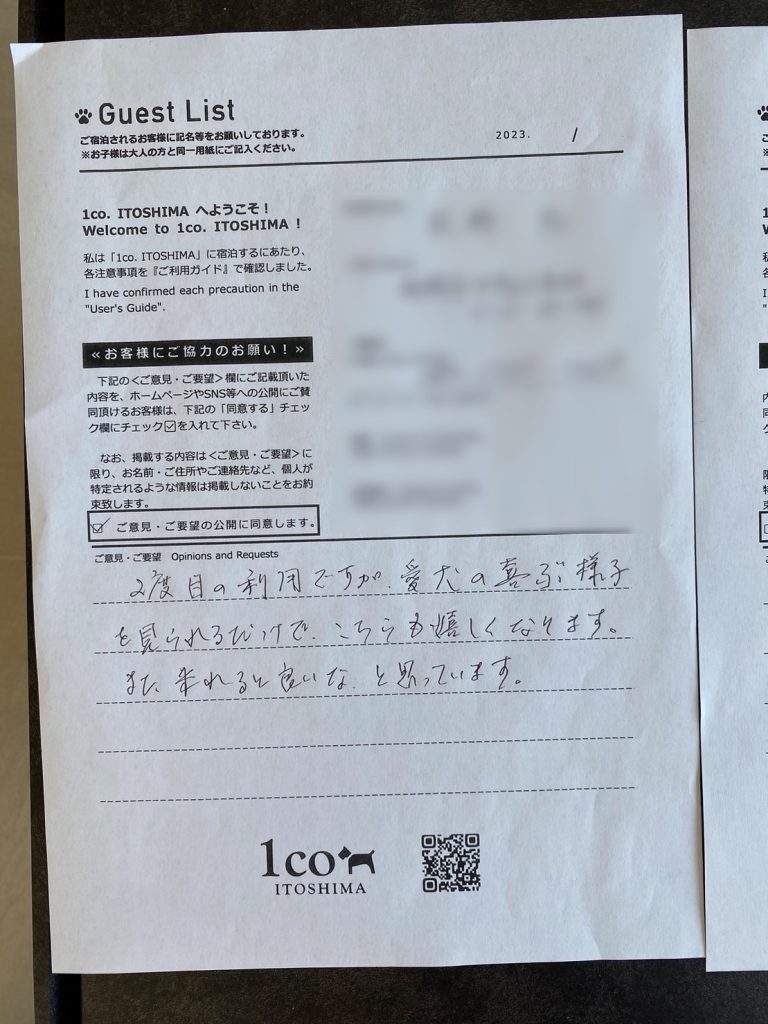 Guest List
ご宿泊されるお客様に記名等をお願いしております。
※お子様は大人の方と同一用紙にご記入ください。
2023. /
1co. ITOSHIMA へようこそ！
Welcome to 1co. ITOSHIMA !
私は「1co. ITOSHIMA」に宿泊するにあたり、
各注意事項を『ご利用ガイド』で確認しました。
I have confirmed each precaution in the
"User's Guide".
≪お客様にご協力のお願い！≫
下記の＜ご意見・ご要望＞欄にご記載頂いた
内容を、ホームページやSNS等への公開にご賛
同頂けるお客様は、下記の「同意する」チェッ
ク欄にチェック☑を入れて下さい。
なお、掲載する内容は＜ご意見・ご要望＞に
限り、お名前・ご住所やご連絡先など、個人が
特定されるような情報は掲載しないことをお約
束致します。
☑ ご意見・ご要望の公開に同意します。
ご意見・ご要望 Opinions and Requests
2度目の利用ですが、愛犬の喜ぶ様子
を見られるだけで、こちらも嬉しくなります。
また、来れると良いな、と思っています。
1co
ITOSHIMA